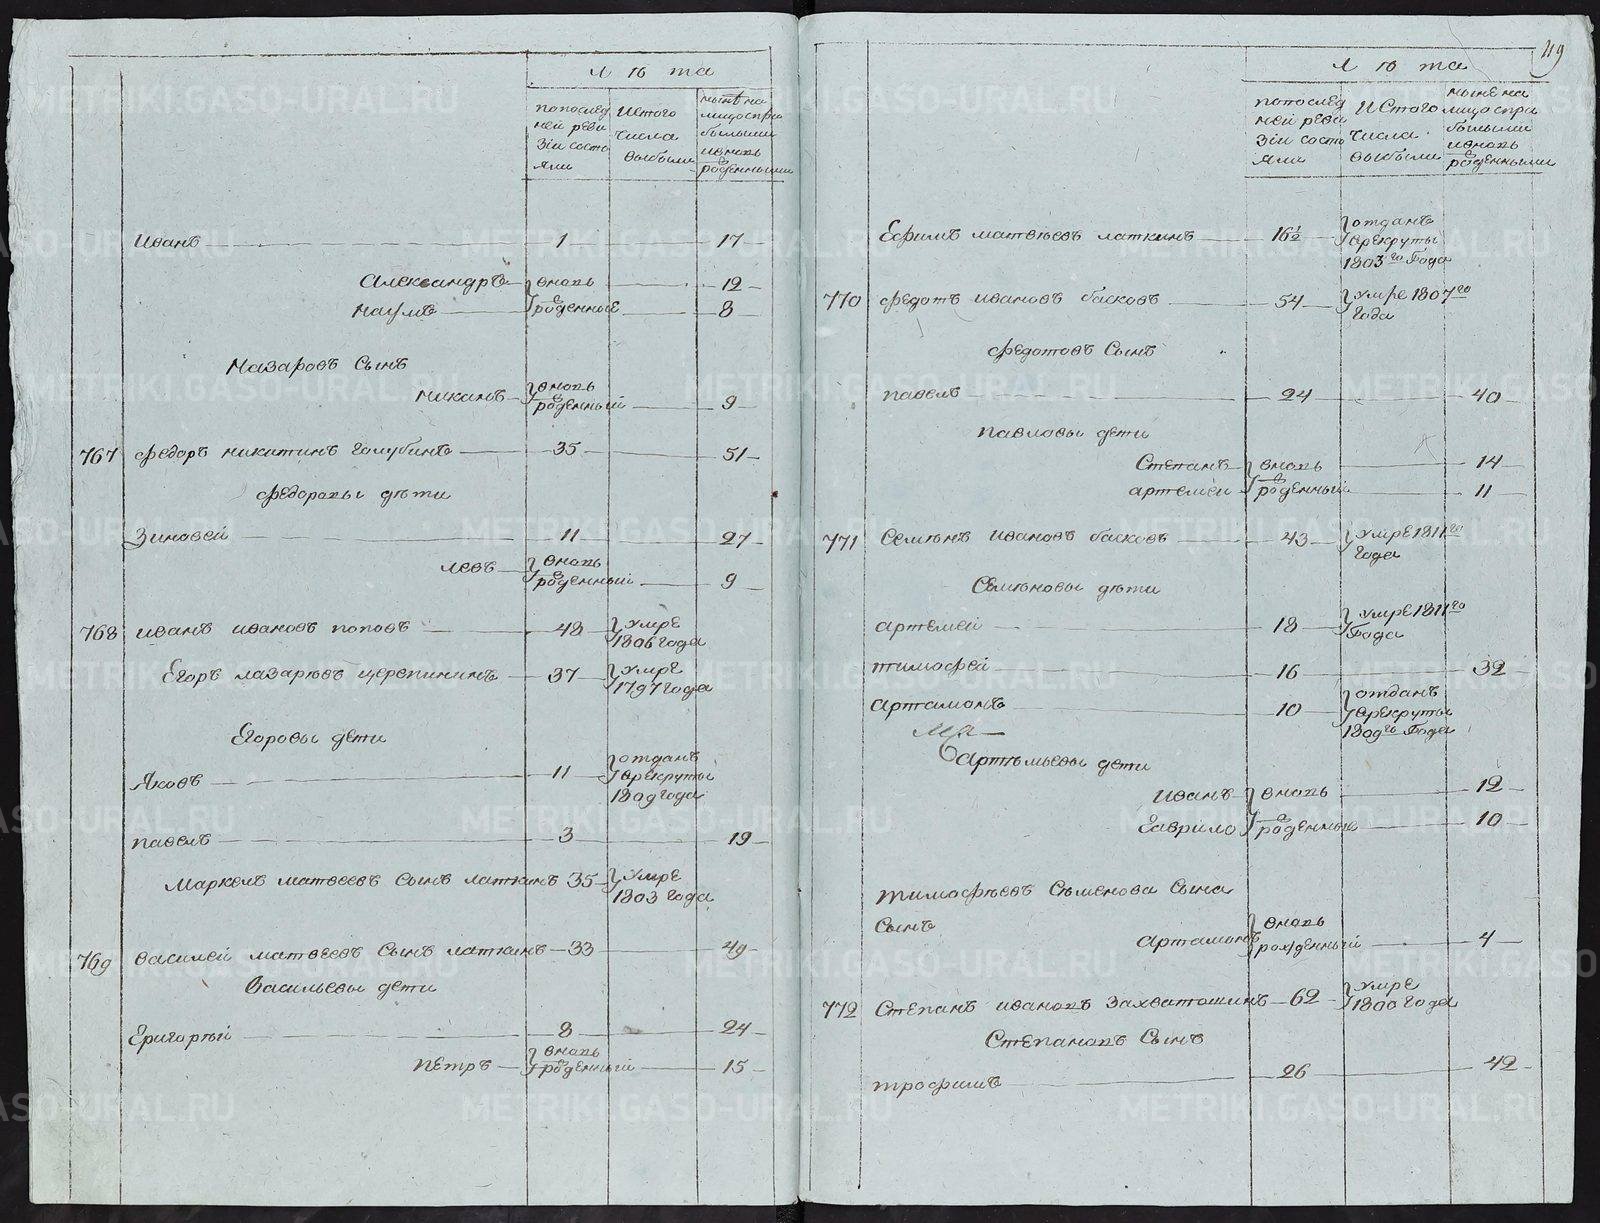 лѣта
попослед
ней реви
зіи состо
яли
Изтого
числа
выбыли
нынѣ на
лицо спри
былыми
ивновь
рожденными
Иванъ 1 17
Александръ вновь 12
Наумъ рожденные 8
Назаровъ Сынъ
Никанъ вновь
рожденный 9
767 Федоръ никитинъ голубинъ 35 51
Федоровы дѣти
Зиновей 11 27
левъ вновь
рожденный 9
768 иванъ ивановъ поповъ 48 умре
1806 года
Егоръ лазарѣвъ щерепининъ 37 умре
1797 года
Егоровы дети
Яковъ 11 отданъ
врекруты
1809 года
павелъ 3 19
Маркелъ матвеевъ Сынъ латкинъ 35 умре
1803 года
769 василей матвеевъ Сынъ латкинъ 33 49
Васильевы дети
Григорѣй 8 24
петръ вновь
рожденный 15
49
лѣта
попослед
ней реви
зіи состо
яли
ИСтого
числа
выбыли
ныне на
лицо спри
былыми
ивновь
рожденными
Ефимъ матвѣевъ латкинъ 16 1/2 отданъ
врекруты
1803го Года
770 федотъ ивановъ басковъ 54 умре 1807го
года
Федотовъ Сынъ
павелъ 24 40
павловы дети
Степанъ вновь 14
артемеи рожденный 11
771 Семѣнъ ивановъ басковъ 43 умре 1811го
года
Семѣновы дѣти
артемей 18 умре 1811го
Года
тимофей 16 32
артамонъ 10 отданъ
врекруты
1809го Года
Артѣмьевы дети
Иванъ вновь 12
Гаврило рожденные 10
тимофѣевъ Съменова Сына
Сынъ
артамонъ вновь
рожденный 4
772 Степанъ ивановъ Захватошинъ 62 умре
1800 года
Степановъ Сынъ
трофимъ 26 42